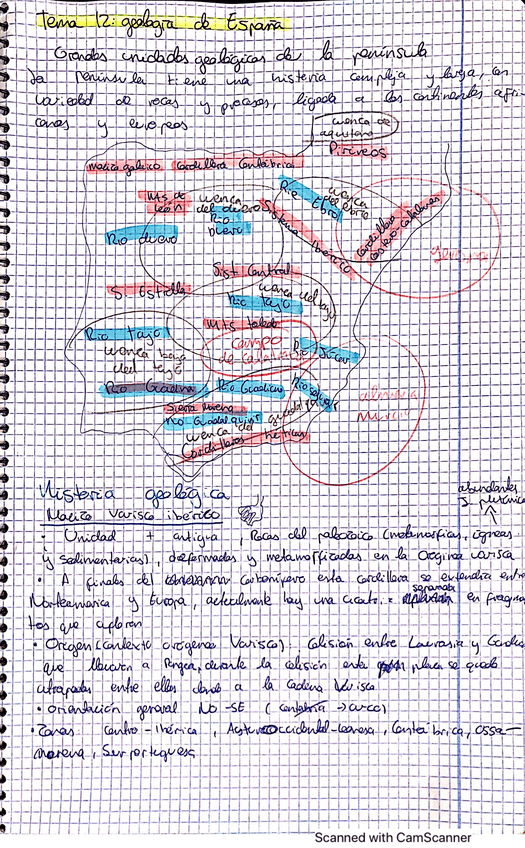 Tema 12: geología de España
Grandes unidades geológicas de la península
La península tiene una historia compleja y larga, con
variedad de rocas y procesos, ligada a los continentes afri-
canos y europeos
cuenca de
aquitana
Pirineos
macizo galaico cordillera Cantábrica
Mts de
león
cuenca
del duero
Rio
Duero
Rio Ebro
cuenca
del ebro
Sistema Ibérico
cordillera
costero-catalanas
Rio duero
Sist Central
S. Estrella
cuenca del tajo
Rio Tajo
Mts toledo
Rio Tajo
cuenca baja
del tajo
Campo
de calatrava
Rio Júcar
Rio Guadiana
Rio Segura
Sierra Morena
Rio Guadalquivir
cuenca del guadalquivir
cordilleras béticas
almeria
Murcia
Historia geológica
Macizo Varisco ibérico
abundantes
· Unidad + antigua, Rocas del paleozoico (metamorficas, ígneas
y sedimentarias), deformadas y metamorfizadas en la Orogina varisca
· A finales del carbonífero esta cordillera se extendía entre
Norteamarica y Europa, actualmente hay una separada en fragmen
tos que afloran
· Origen (contexto orogenos Varisco). Colisión entre Laurasia y Gondwa
que llevaron a Pangea, durante la colisión entre placa se quedó
atrapadas entre ellas dando a la Cadena Varisca
· orientación general NO-SE (cantabria → arco)
· Zonas: centro-Ibérica, Asturoccidental-leonesa, Cantábrica, ossa-
morena, Surportuguesa
Scanned with CamScanner